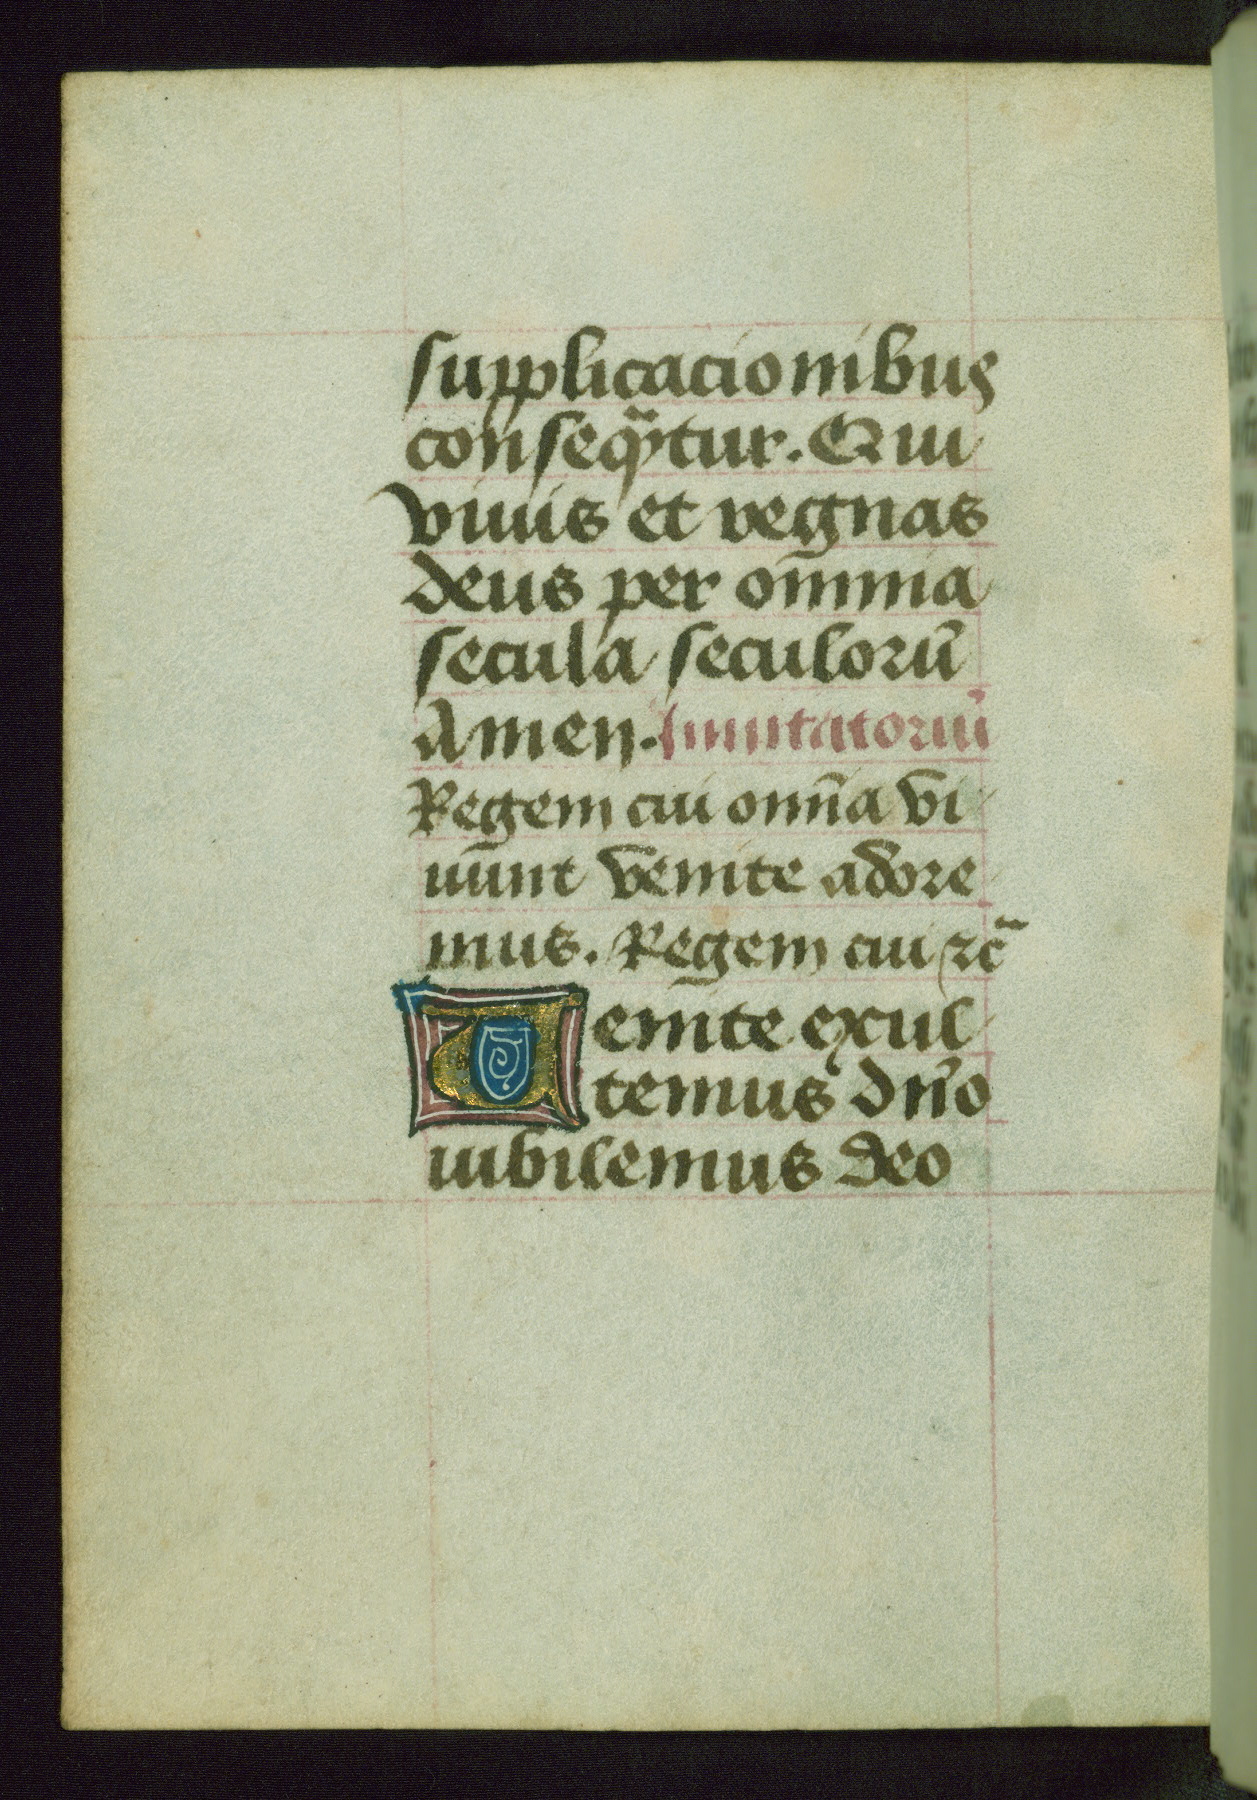 supplicacionibus
conseqͣtur. Qui
viuis et regnas
deus per om̄nia
secula seculorū
Amen. Inuitatoriū
Regem cui omn̄ia vi
uunt venite adore
mus. Regem cui ⁊c̄
Venite exul
temus dn̄o
iubilemus deo